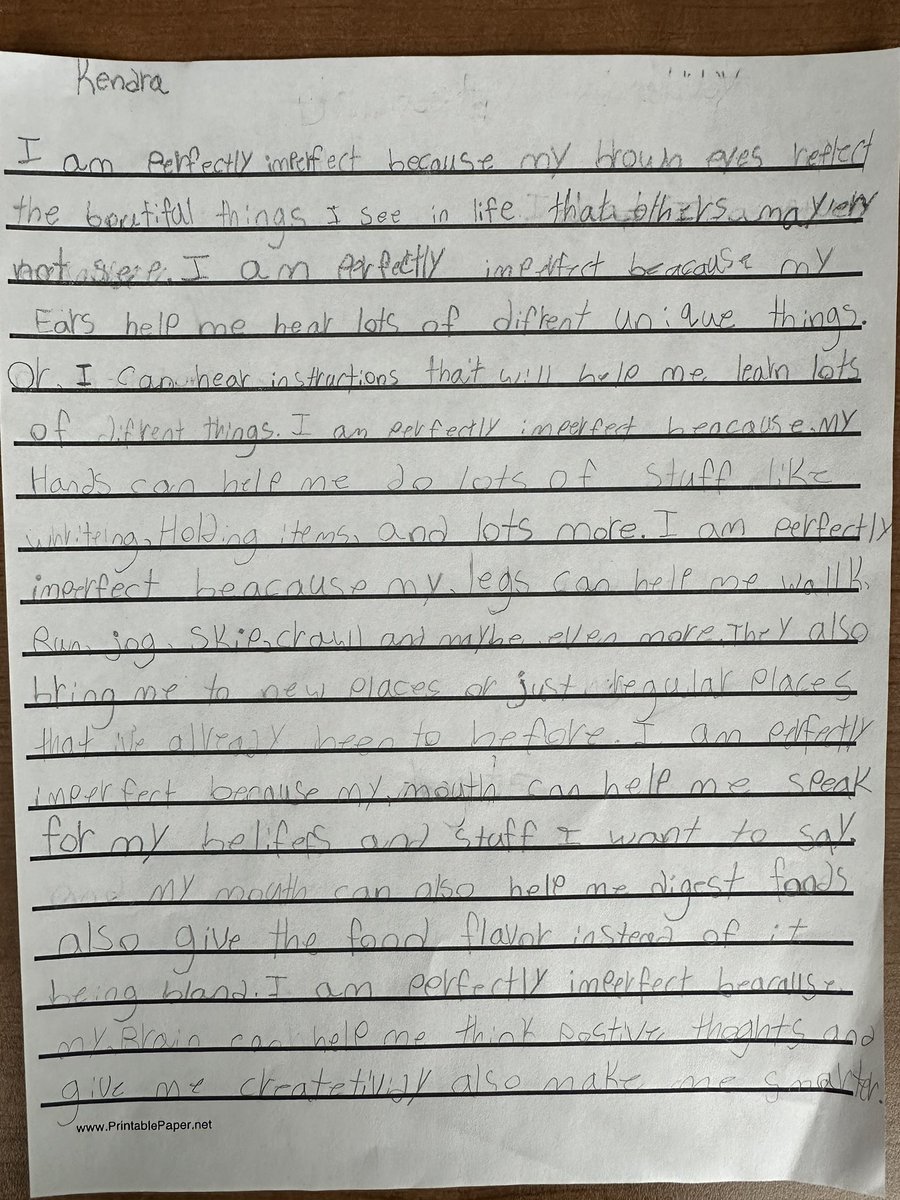 Kendra
I am perfectly imperfect because my brown eyes reflect
the boutiful things I see in life that others may
not see. I am perfectly imperfect beacause my
Ears help me hear lots of difrent unique things.
Or, I can hear instructions that will help me learn lots
of difrent things. I am perfectly imperfect beacause my
Hands can help me do lots of stuff like
Holding items, and lots more. I am perfectly
imperfect beacause my legs can help me wallk,
Run, jog, skip, crawl and maybe even more. They also
bring me to new places or just regular places
that been to before. I am perfectly
imperfect because my mouth can help me speak
for my belifefs and stuff I want to say.
my mouth can also help me digest foods
also give the food flavor instead of it
being bland. I am perfectly imperfect beacause
my Brain can help me think postive thoghts and
give me also make me smarter.
www.PrintablePaper.net